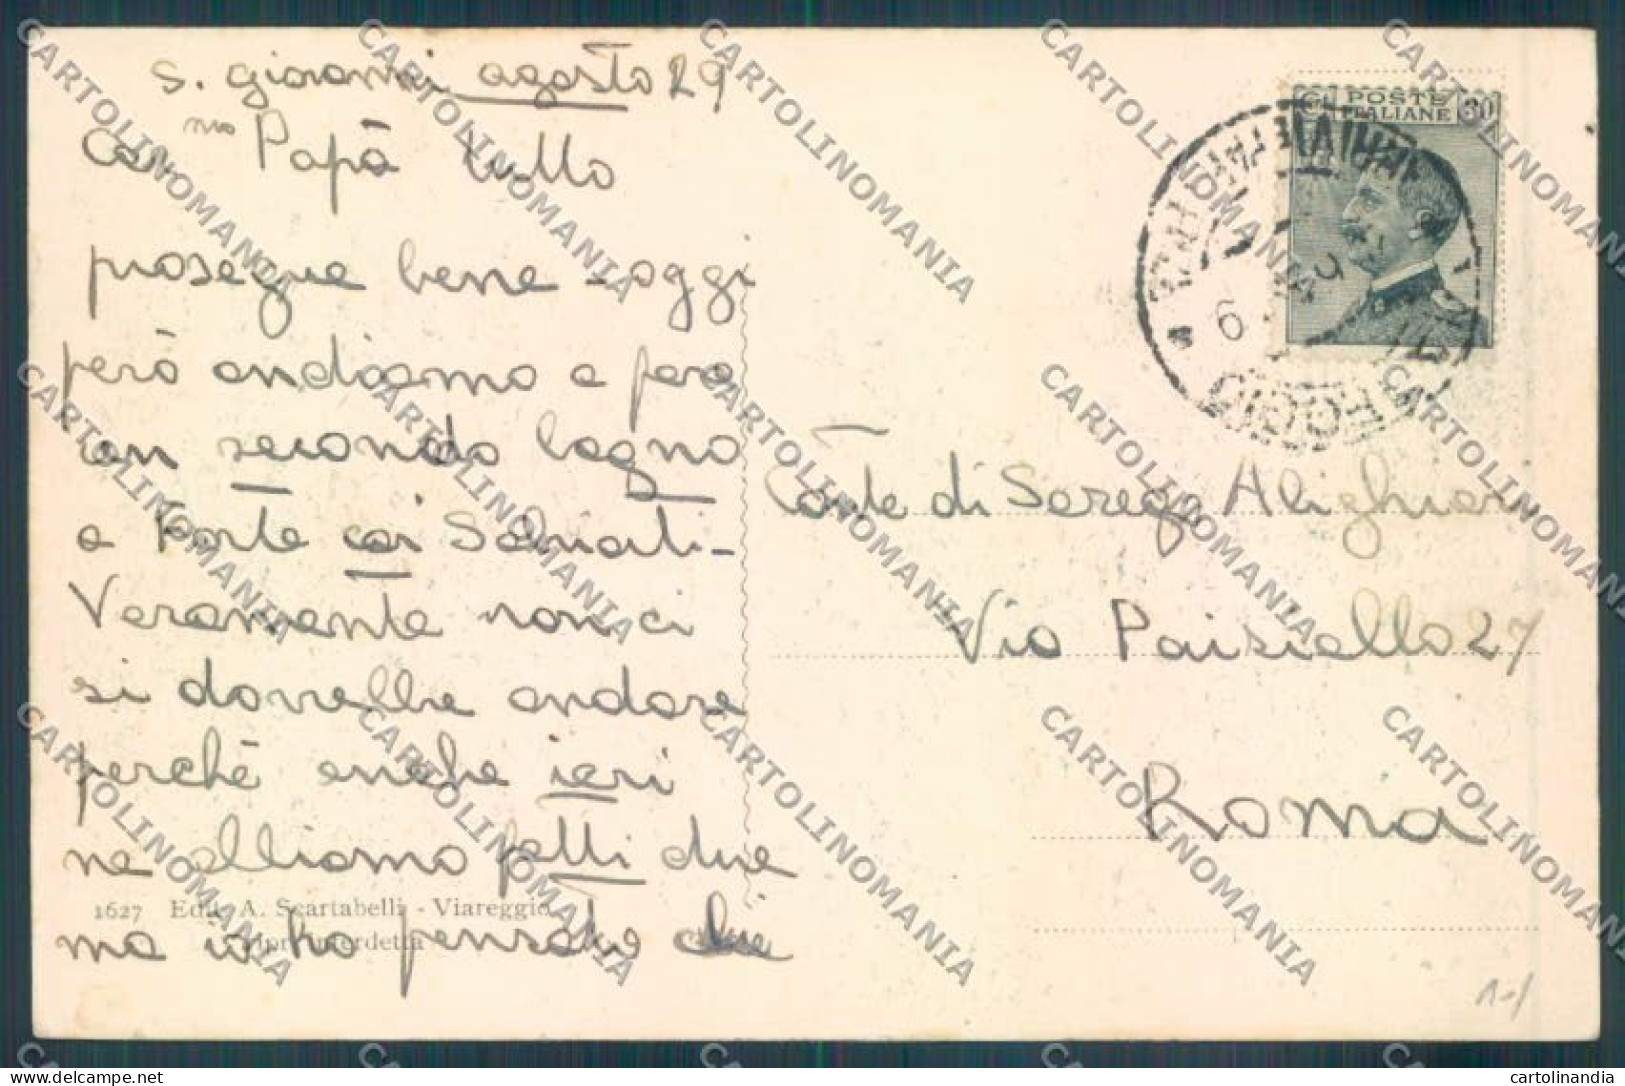 S. Giovanni agosto 29
Car mio Papà tutto
prosegue bene - oggi
però andiamo a fare
un secondo bagno
a Forte coi
Veramente non ci
si dovrebbe andare
perchè anche ieri
ne abbiamo fatti due
ma io ho pensato che
1627 Edit. A. Scartabelli - Viareggio
Ripr. interdetta
POSTE
ITALIANE
30
Conte di Serego Alighieri
Via Paisiello 27
Roma
CARTOLINOMANIA
cartolinandia